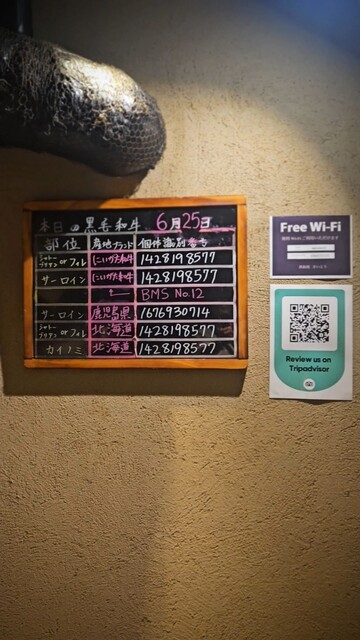 本日の黒毛和牛 6月25日
部位 産地ブランド 個体識別番号
シャトーブリアン or フィレ にいがた和牛 1428198577
サーロイン にいがた和牛 1428198577
BMS No.12
サーロイン 鹿児島県 1676930714
シャトーブリアン or フィレ 北海道 1428198577
カイノミ 北海道 1428198577
Free Wi-Fi
Review us on
Tripadvisor